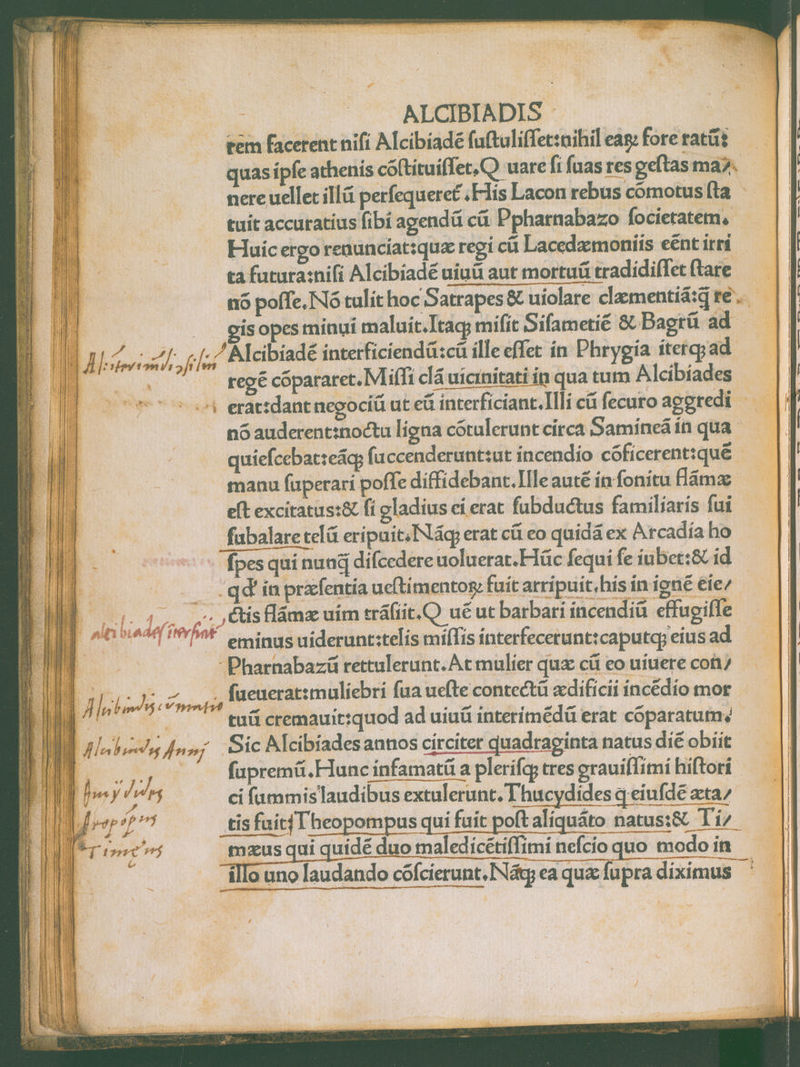 ALCIBIADIS
rem facerent nisi Alcibiadẽ ſuſtuliſſet:nihil eaꝝ fore ratũ:
quas ipſe athenis cõſtituiſſet,Q uare ſi ſuas res geſtas ma⸗
nere uellet illũ perſequeret᷑.His Lacon rebus cõmotus ſta
tuit accuratius ſibi agendũ cũ Ppharnabazo ſocietatem.
Huic ergo renunciat:quæ regi cũ Lacedæmoniis eẽnt irri
ta futura:niſi Alcibiadẽ uiuũ aut mortuũ tradidiſſet ſtare
nõ poſſe.Nõ tulit hoc Satrapes & uiolare clæmentiã:q̃ re
gis opes minui maluit.Itaqꝫ miſit Siſametiẽ & Bagrũ ad
Alcibiadẽ interficiendũ:cũ ille eſſet in Phrygia iterqꝫ ad
regẽ cõpararet.Miſſi clã uicinitati in qua tum Alcibiades
erat:dant negociũ ut eũ interficiant.Illi cũ ſecuro aggredi
nõ auderent:noctu ligna cõtulerunt circa Samineã in qua
quieſcebat:eãqꝫ ſuccenderunt:ut incendio cõficerent:quẽ
manu ſuperari poſſe diffidebant.Ille autẽ in ſonitu flãmæ
eſt excitatus:& ſi gladius ei erat ſubductus familiaris ſui
ſubalare telũ eripuit.Nãqꝫ erat cũ eo quidã ex Arcadia ho
ſpes qui nunq̃ diſcedere uoluerat.Hũc ſequi ſe iubet:& id
qď in præſentia ueſtimentoꝝ fuit arripuit.his in ignẽ eie⸗
ctis flãmæ uim trãſiit.Q uẽ ut barbari incendiũ effugiſſe
eminus uiderunt:telis miſſis interfecerunt:caputqꝫ eius ad
Pharnabazũ rettulerunt.At mulier quæ cũ eo uiuere con⸗
ſueuerat:muliebri ſua ueſte contectũ ædificii incẽdio mor
tuũ cremauit:quod ad uiuũ interimẽdũ erat cõparatum.
Sic Alcibiades annos circiter quadraginta natus diẽ obiit
ſupremũ.Hunc infamatũ a pleriſqꝫ tres grauiſſimi hiſtori
ci ſummis laudibus extulerunt.Thucydides q eiuſdẽ æta⸗
tis fuit:Theopompus qui fuit poſt aliquãto natus:& Ti⸗
mæus qui quidẽ duo maledicẽtiſſimi neſcio quo modo in
illo uno laudando cõſcierunt.Nãqꝫ ea quæ ſupra diximus
alcibiades
Timeus